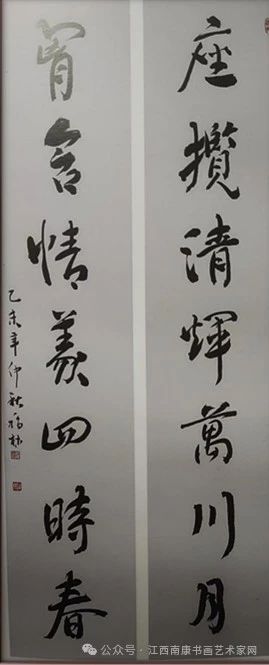 座攬清輝萬川月
胷含情義四時春
乙未年仲秋
公众号 · 江西南康书画艺术家网